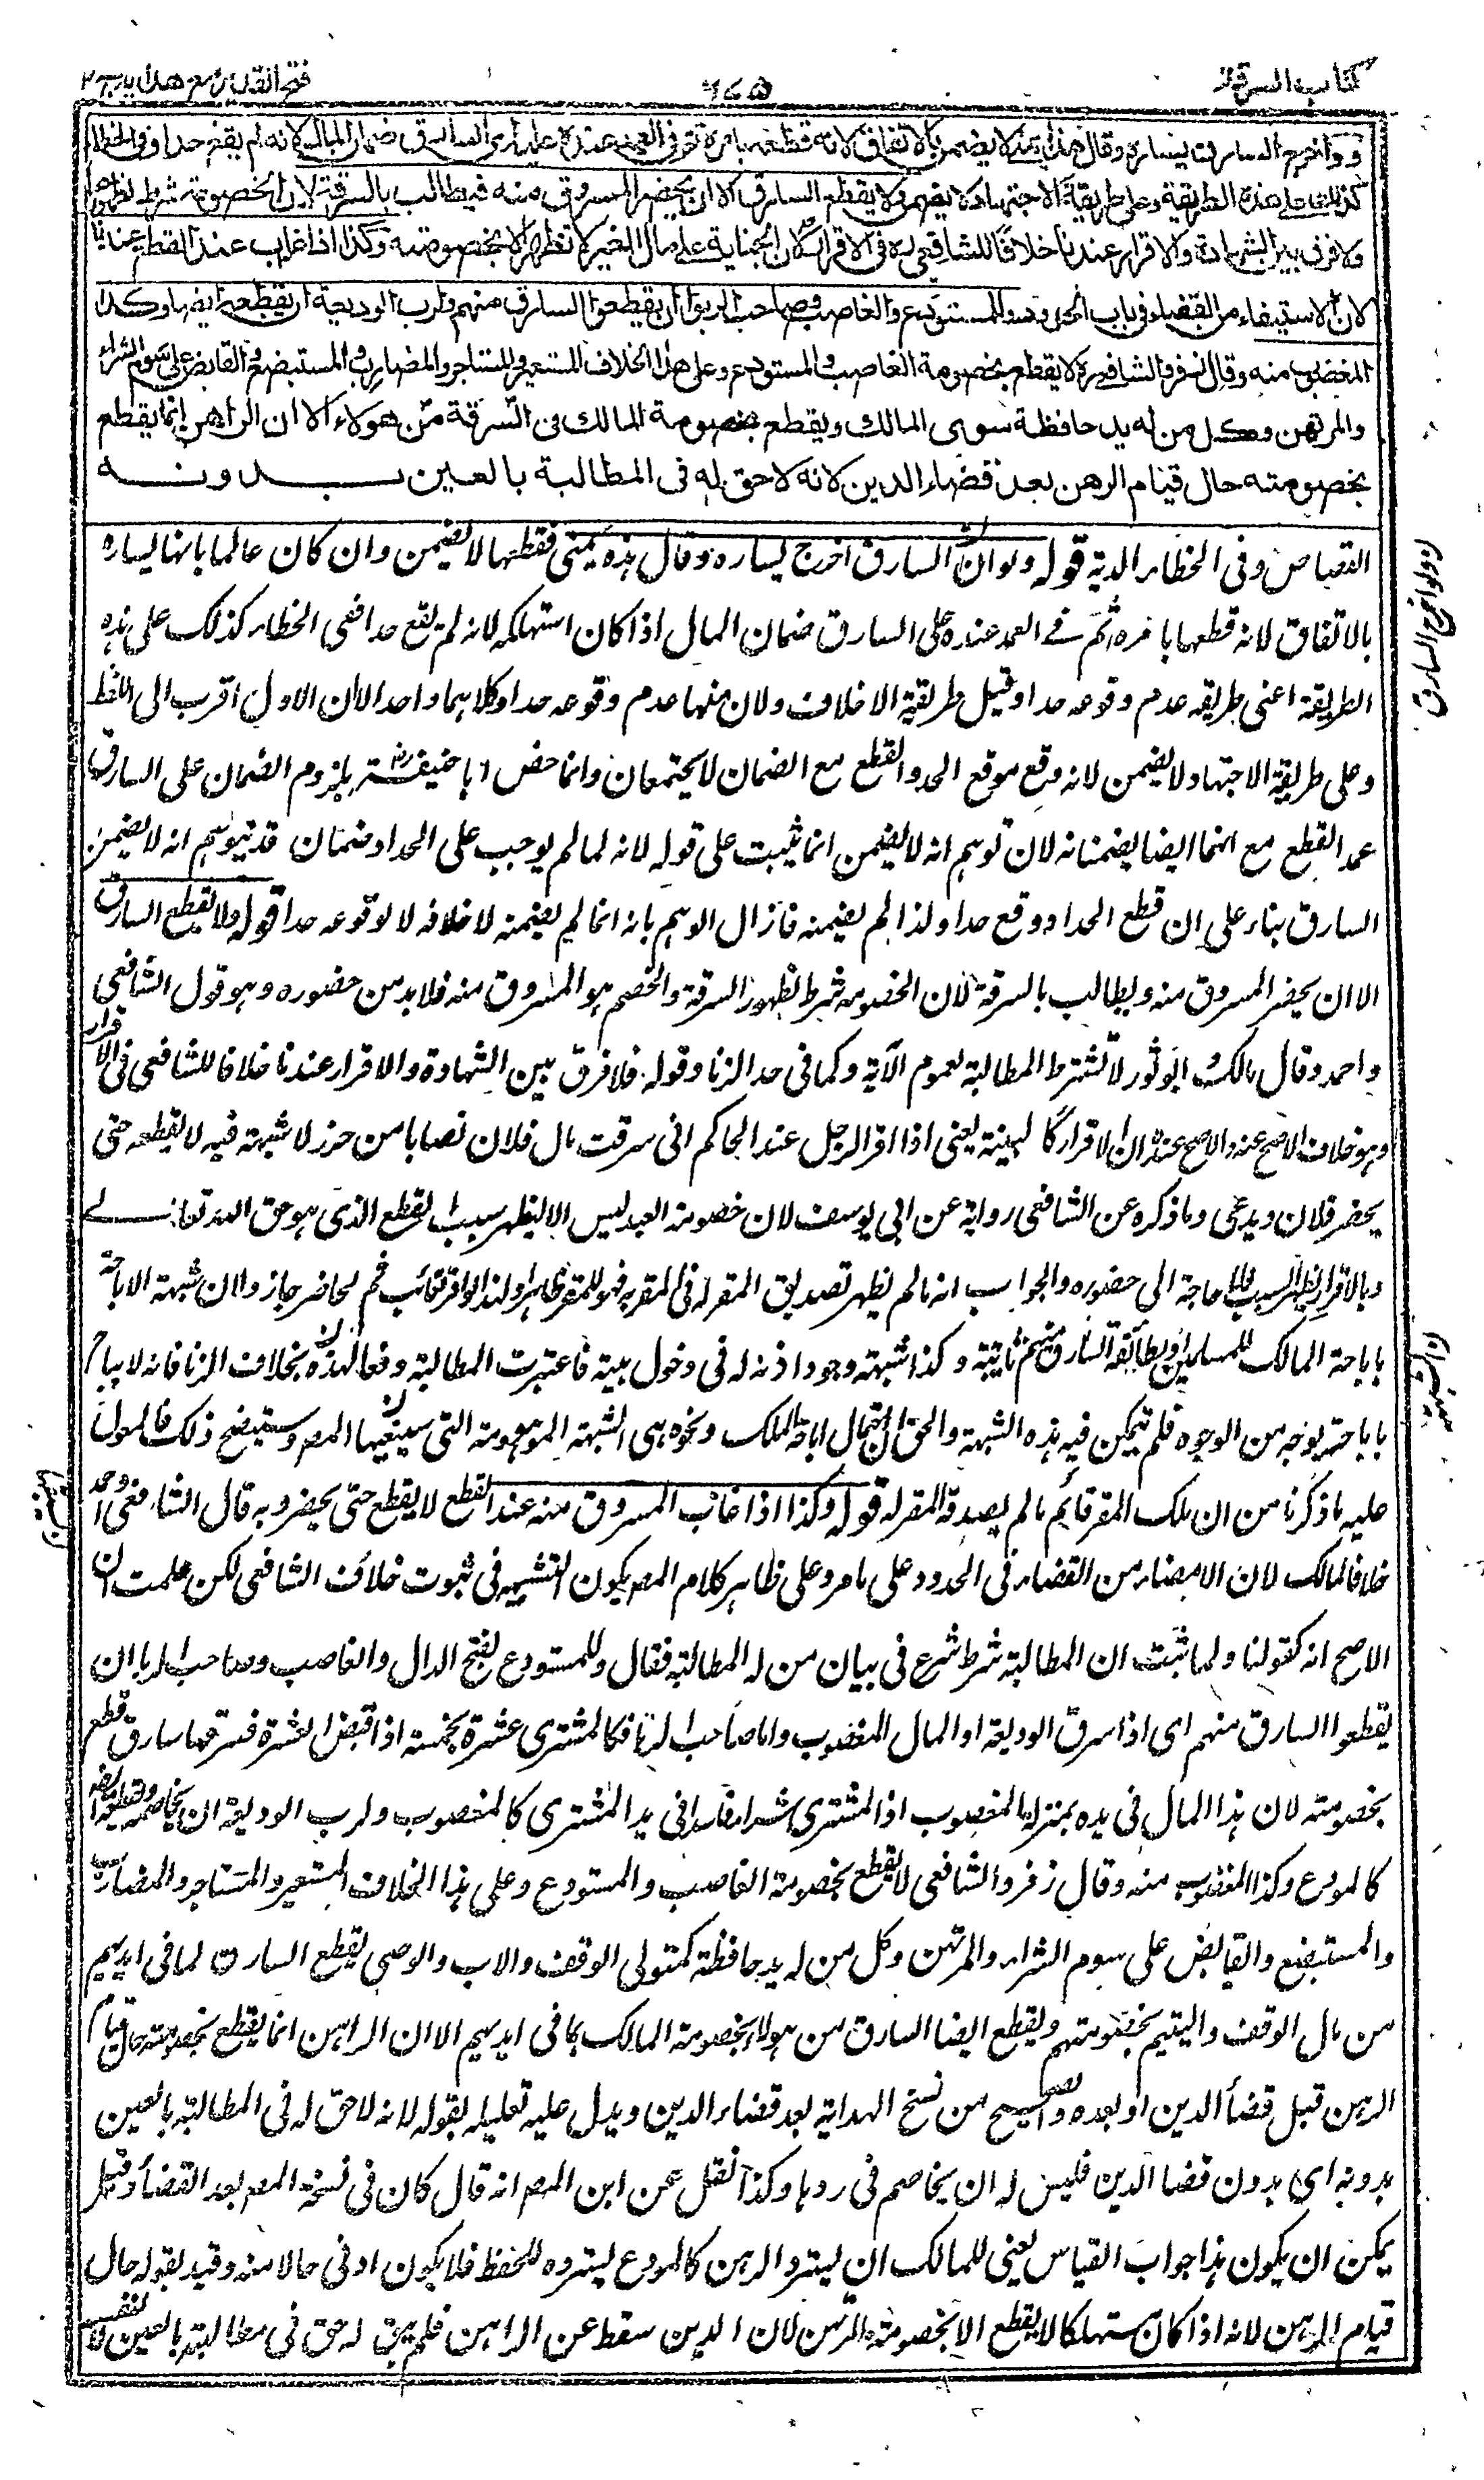 كتاب السرقة
فتح القدير مع هدايه ج ٢
ولو اخرج السارق يساره وقال هذه يمينى لا يضمن بالاتفاق لانه قطعه بامره ثم فى العمد عنده عليه اى السارق ضمان المال لانه لم يقع حدا وفى الخطا
كذلك على هذه الطريقة وعلى طريقة الاجتهاد لا يضمن ولا يقطع السارق الا ان يحضر المسروق منه فيطالب بالسرقة لان الخصومة شرط لظهورها
ولا فرق بين الشهادة والاقرار عندنا خلافا للشافعى ره فى الاقرار لان الجناية على مال الغير لا تظهر الا بخصومته وكذا اذا غاب عند القطع عندنا
لان الاستيفاء من القضاء فى باب الحدود وللمستودع والغاصب وصاحب الربوا ان يقطعوا السارق منهم ولرب الوديعة ان يقطعه ايضا وكذا
المغصوب منه وقال زفر والشافعى ره لا يقطع بخصومة الغاصب والمستودع وعلى هذا الخلاف المستعير والمستاجر والمضارب والمستبضع والقابض على سوم الشراء
والمرتهن وكل من له يد حافظة سوى المالك ويقطع بخصومة المالك فى السرقة من هولاء الا ان الراهن انما يقطع
بخصومته حال قيام الرهن بعد قضاء الدين لانه لا حق له فى المطالبة بالعين بدونه
القصاص وفى الخطاء الدية قوله ولو ان السارق اخرج يساره وقال هذه يمينى فقطعها لا يضمن وان كان عالما بانها يساره
بالاتفاق لانه قطعها بامره ثم فى العمد عنده على السارق ضمان المال اذا كان استهلكه لانه لم يقع حدا ففى الخطاء كذلك على هذه
الطريقة اعنى طريقه عدم وقوعه حدا وقيل طريقة الاخلاف ولان منها عدم وقوعه حدا وكلاهما واحد الا ان الاول اقرب الى اللفظ
وعلى طريقة الاجتهاد لا يضمن لانه وقع موقع الحد والقطع مع الضمان لا يجتمعان وانما خص ابا حنيفة رض بلزوم الضمان على السارق
عمد القطع مع انهما ايضا يضمنانه لان توهم انه لا يضمن انما يثبت على قوله لانه لما لم يوجب على الحداد ضمان قد يتوهم انه لا يضمن
السارق بناء على ان قطع الحداد وقع حدا ولذا لم يضمنه فازال الوهم بانه انما لم يضمنه لاخلافه لا لوقوعه حدا قوله ولا يقطع السارق
الا ان يحضر المسروق منه ويطالب بالسرقة لان الخصومه شرط لظهور السرقة والخصم هو المسروق منه فلا بد من حضوره وهو قول الشافعى
واحمد وقال مالك وابو ثور لا تشترط المطالبة لعموم الآية وكما فى حد الزنا وقوله فلا فرق بين الشهادة والاقرار عندنا خلافا للشافعى فى الاقرار
وهو خلاف الاصح عنه والاصح عنده ان الاقرار كالبينة يعنى اذا اقر الرجل عند الحاكم انى سرقت مال فلان نصابا من حرز لا شبهة فيه لا يقطعه حتى
يحضر فلان ويدعى وما ذكره عن الشافعى رواية عن ابى يوسف لان خصومة العبد ليس الا ليظهر سبب القطع الذى هو حق الله تعالى
وبالاقرار يظهر السبب فلا حاجة الى حضوره والجواب انه ما لم يظهر تصديق المقر له فى المقر به فهو للمقر ظاهرا ولذا لو اقر لغائب ثم لحاضر جاز ولان شبهة الاباحة
باباحة المالك للمسلمين او لطائفة السارق منهم ثابتة وكذا شبهة وجود اذنه له فى دخول بيته فاعتبرت المطالبة دفعا لهذه بخلاف الزنا فانه لا يباح
باباحة بوجه من الوجوه فلم يتمكن فيه هذه الشبهة والحق ان احتمال اباحة المالك ونحوه هى الشبهة الموهومة التى سينفيها المصو ستتضح ذلك فالمعول
عليه ما ذكرنا من ان ملك المقر قائم ما لم يصدقه المقر له قوله وكذا اذا غاب المسروق منه عند القطع لا يقطع حتى يحضر وبه قال الشافعى واحمد
خلافا لمالك لان الامضاء من القضاء فى الحدود على ما مر وعلى ظاهر كلام المصو يكون التشبيه فى ثبوت خلاف الشافعى لكن علمت ان
الاصح انه كقولنا ولما ثبت ان المطالبة شرط شرع فى بيان من له المطالبة فقال وللمستودع بفتح الدال والغاصب وصاحب الربا ان
يقطعوا السارق منهم اى اذا سرق الوديعة او المال المغصوب واما صاحب الربا فكالمشترى عشرة بخمسة اذا قبض العشرة فسرقها سارق قطع
بخصومته لان هذا المال فى يده بمنزلة المغصوب اذ المشترى شراء فاسدا فى يد المشترى كالمغصوب ولرب الوديعة ان يخاصمه ويقطعه ايضا
كالمودع وكذا المغصوب منه وقال زفر والشافعى لا يقطع بخصومة الغاصب والمستودع وعلى هذا الخلاف المستعير والمستاجر والمضارب
والمستبضع والقابض على سوم الشراء والمرتهن وكل من له يد حافظة كمتولى الوقف والاب والوصى يقطع السارق لما فى ايديهم
من مال الوقف واليتيم بخصومتهم ويقطع ايضا السارق من هولاء بخصومة المالك لما فى ايديهم الا ان الراهن انما يقطع بخصومته حال قيام
الرهن قبل قضاء الدين او بعده والصحيح من نسخ الهداية بعد قضاء الدين ويدل عليه تعليله بقوله لانه لا حق له فى المطالبة بالعين
بدونه اى بدون قضا الدين فليس له ان يخاصم فى ردها وكذا نقل عن ابن المصو انه قال كان فى نسخة المصو بعد القضاء وقيل
يمكن ان يكون هذا جواب القياس يعنى للمالك ان يسترد الرهن كالمودع يسترده للحفظ فلا يكون ادنى حالا منه وقيد بقوله حال
قيام الرهن لانه اذا كان مستهلكا لا يقطع الا بخصومة المرتهن لان الدين سقط عن الراهن فلم يبق له حق فى مطالبته بالعين
ولو اخرج السارق